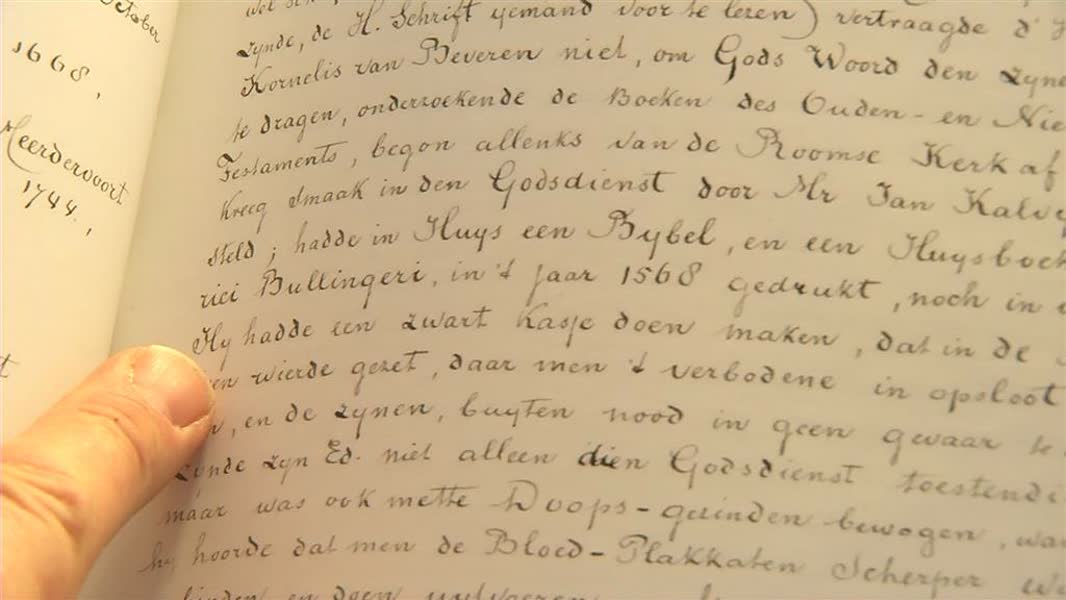 October
1668,
Meerdervoort
1744,
zynde, de H. Schrift yemand voor te lezen) vertraagde d'
Kornelis van Beveren niet, om Gods Woord den zyne
te dragen, onderzoekende de Boeken des Ouden - en Nie
Testaments, begon allenks van de Roomse Kerk af
kreeg smaak in den Godsdienst door Mr Jan Kalv
steld; hadde in Huys een Bybel, en een Huysboek
rici Bullingeri, in 't jaar 1568 gedrukt, noch in
Hy hadde een zwart kasje doen maken, dat in de
en wierde gezet, daar men 't verbodene in opsloot
n, en de zynen, buyten nood in geen gevaar te
zynde zyn Ed. niet alleen dien Godsdienst toestendi
maar was ook mette Doops-gezinden bewogen, wa
hy hoorde dat men de Bloed-Plakkaten Scherper